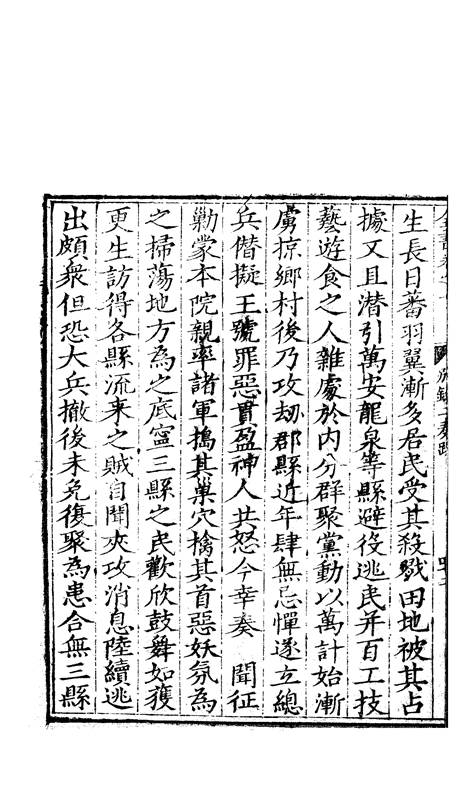 生長日蕃羽翼漸多居民受其殺戮田地被其占
據又且潜引萬安龍泉等縣避役逃民并百工技
藝遊食之人雜處於内分群聚黨動以萬計始漸
虜掠鄉村後乃攻刼郡縣近年肆無忌憚遂立總
兵僣擬王號罪惡貫盈神人共怒今幸奏　聞征
勦蒙本院親率諸軍搗其巢穴擒其首惡妖氛為
之掃蕩地方為之底寧三縣之民歡欣鼓舞如獲
更生訪得各縣流来之賊自聞夾攻消息陸續逃
出頗衆但恐大兵撤後未免復聚為患合無三縣